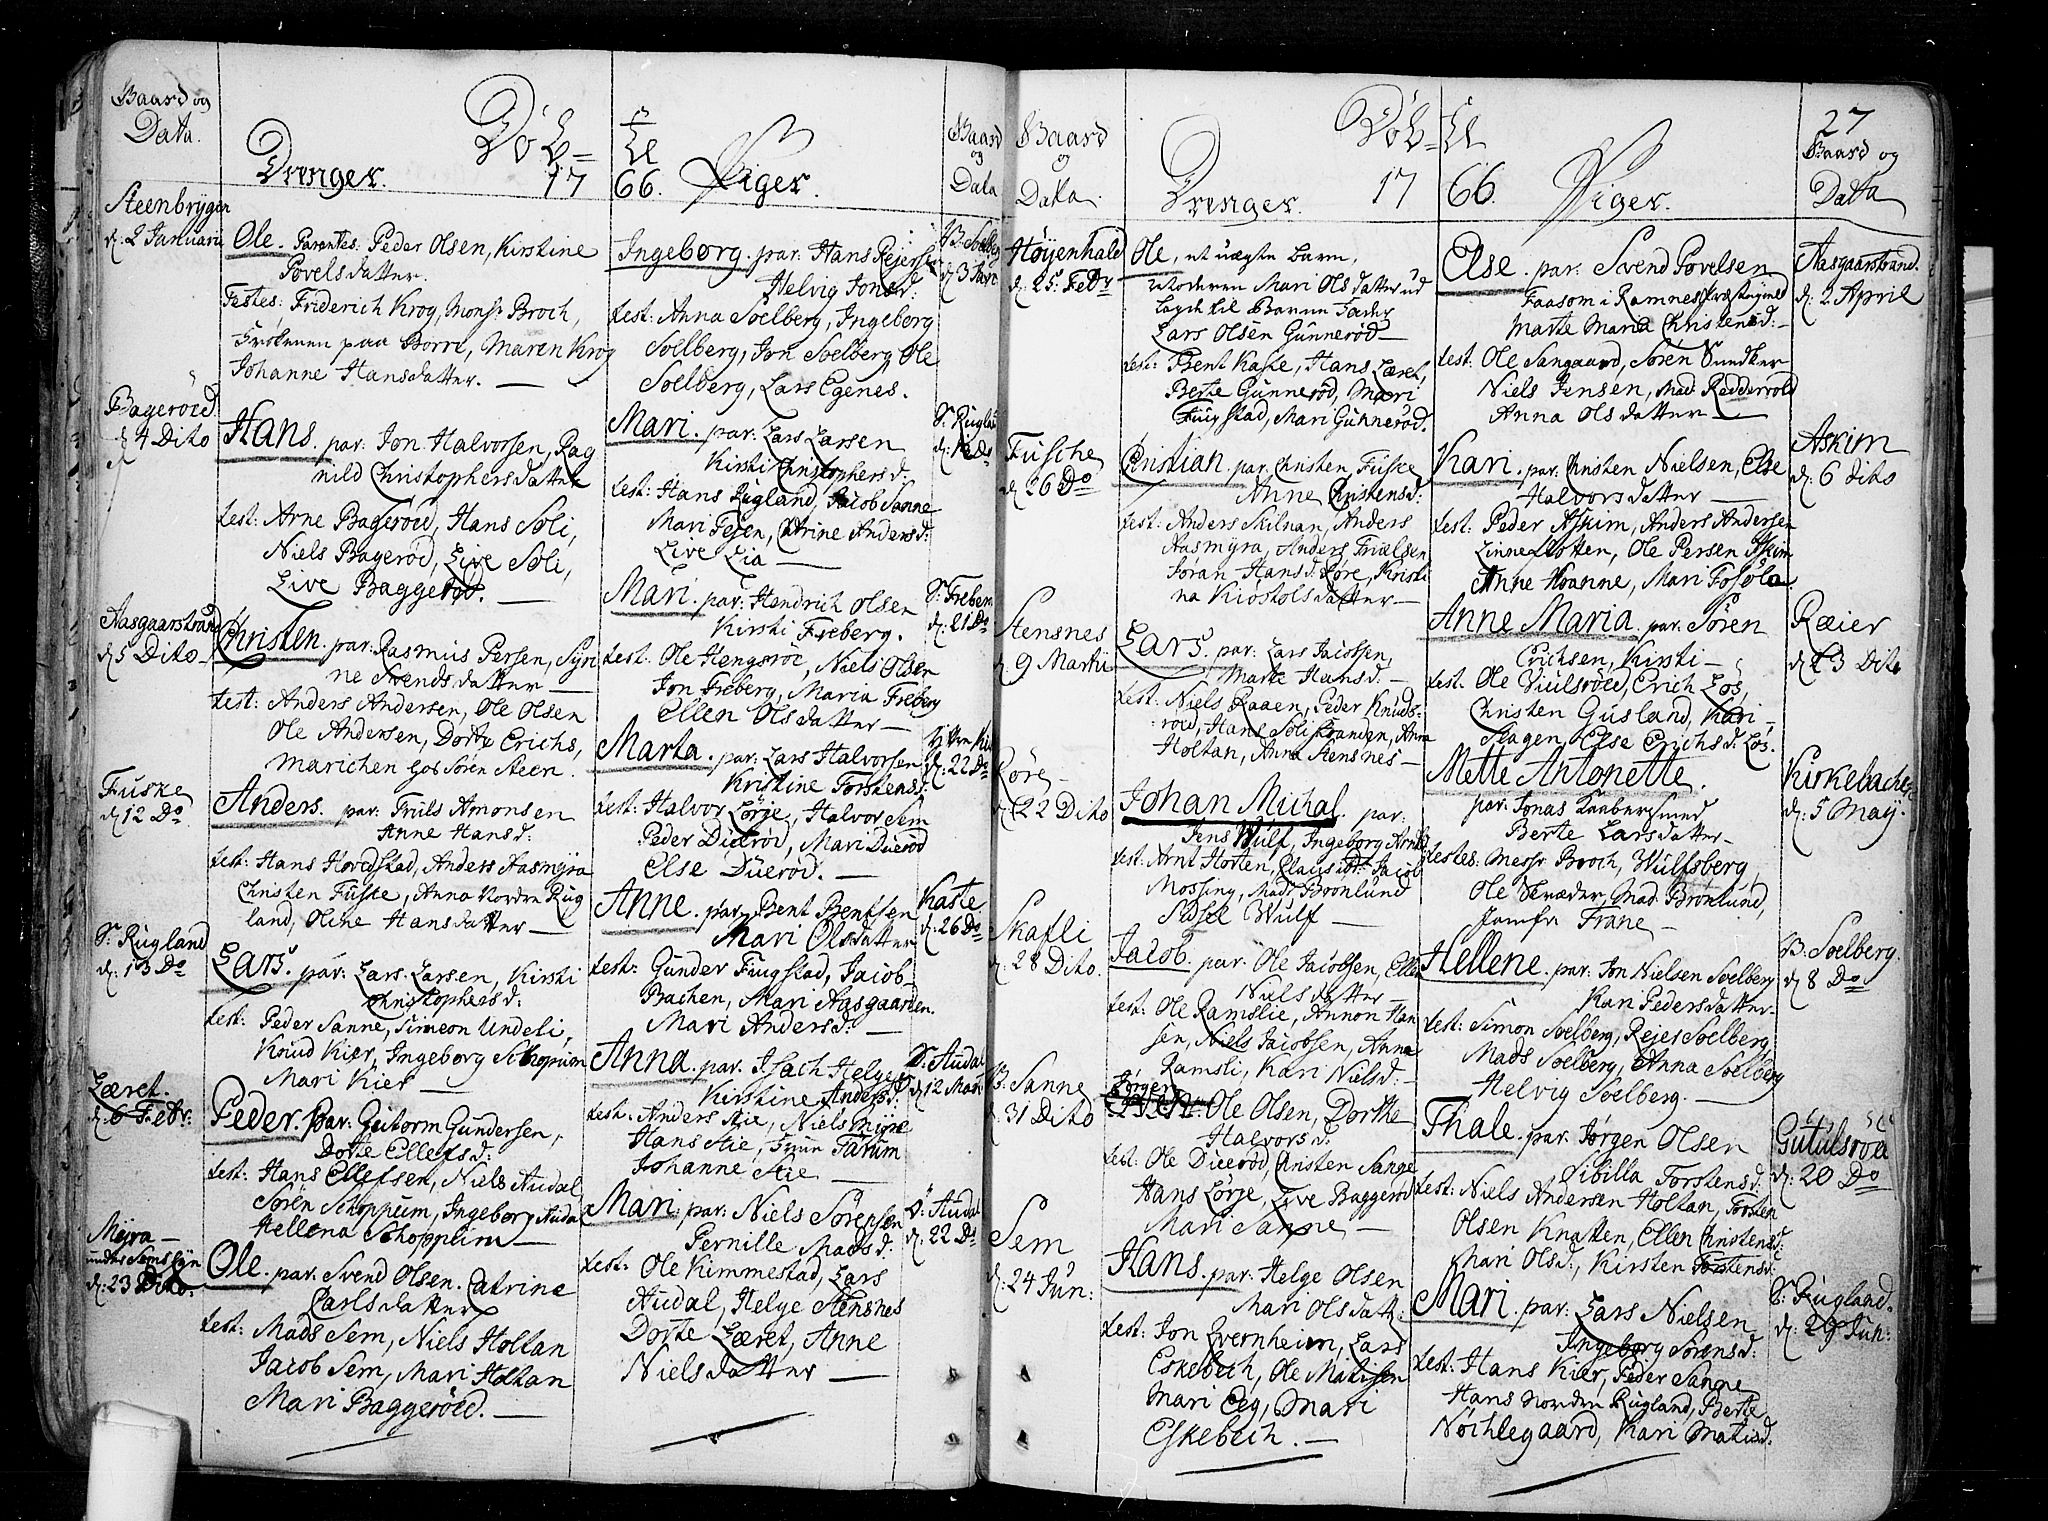 Baard og
Data.
Døb=
Drenger.
17
Steenbrygen
d: 2 Januarii
Ole. Parentes: Peder Olsen, Kirstine
Povelsdatter.
Testes: Friderich Krog, Monsr Broch,
Frøkenen paa Borre, Maren Krog
Johanne Hansdatter. —
Bagerøed.
d 4 Dito
Hans. par: Jon Halvorsen, Rag
nild Christophersdatter
test: Arne Bagerød, Hans Soli,
Niels Bagerød, Live Soli,
Live Baggerød. —
Aasgaarstrand
d 5 Dito
Christen par: Rasmus Persen, Syri
ne Svendsdatter —
test: Anders Andersen, Ole Olsen
Ole Andersen, Dorte Erichs,
Marichen hos Søren Steen.
Fuske
d 12 Do
Anders. par: Truls Amonsen
Anne Hansd:
test: Hans Hovedstad, Anders Aasmyra
Christen Fuske, Anna Nordre Rug
land, Olene Hansdatter —
S. Rugland
d: 13 Do
Lars. par: Lars Larsen, Kirsti
Christophersd:
test: Peder Sanne, Simeon Undeli,
Knud Kier, Ingeborg Schopum
Mari Kier —
Læret.
d: 6 Febr:
Peder. par: Gutorm Gundersen,
Dorte Ellefsd:
test: Hans Ellefsen, Niels Audal
Søren Schopum, Ingeborg Audal
Hellena Schoppum —
Myra —
under Sems Eyn
d: 23 Dito.
Ole. par. Svend Olsen. Catrine
Carlsdatter
test: Mads Sem, Niels Holtan
Jacob Sem, Mari Holtan
Mari Baggerøed. —
te
66. Piger.
Baard
og
Data
Ingeborg. par: Hans Rejersen
Helvig Jonsd:
test: Anna Soelberg, Ingeborg
Soelberg, Jon Soelberg, Ole
Solberg, Lars Egenes.
B. Soelberg
d 3 Jan
Mari. par: Lars Larsen
Kirsti Christophersd:
test: Hans Rugland, Jacob Sanne
Mari Fegen, Catrine Andersd:
Live Lia —
S. Rugla
Mari. par: Hendrich Olsen
Kirsti Freberg.
test: Ole Hengsrøe, Niels Olsen
Jon Freberg, Maria Freberg
Ellen Olsdatter —
S. Freber
d: 21 Do
Marta. par: Lars Halvorsen
Kristine Torstensd:
test: Halvor Lørje, Halvor Sem
Peder Duerød, Mari Duerød
Else Duerød. —
d. 22 Do
Anne. par: Bent Bentsen
Mari Olsdatter
test: Gunder Fuugstad, Jacob
Bachen, Mari Aasgaarden.
Mari Andersd: —
Kaste
d. 26 Do
Anna. par: Isach Helge
Kirstine Andersd:
test: Anders Stie, Niels Myre
Hans Stie, Truun Tarum
Johanne Stie —
S. Audal
d 12 Mar
Mari: par: Niels Sørensen
Pernille Madsd:
test: Ole Kimmestad, Lars
Audal, Helge Stensnes
Dorte Læret, Anne
Nielsdatter —
Audal
d. 22 Do
Baard
og
Data
Døb=
Drenger.
17
Høyenhald
d: 25: Febr
Ole, et uægte barn,
Moderen Mari Olsdatter ud
lagde til Barne Fader
Lars Olsen Gunnerød —
test: Bent Kaste, Hans Læret,
Berte Gunnerød, Mari
Fuugstad, Mari Gunnerød.
Fusche
d. 26 Do
Cristian. par. Christen Fuske
Anne Christensd:
test: Anders Skilnan, Anders
Aasmyra, Anders Trulsen
Jøran Hansd. Røre, Kristi
na Kiostolsdatter —
Stensnes
d 9 Martii
Lars. par: Lars Jacobsen,
Marte Hansd. —
test: Niels Raaen, Peder Knuds=
røed, Hans Solistranden, Anna
Holtan, Anna Stensnes —
Røre —
d 22 Dito
Johan Michal. par:
Jens Wulf, Ingeborg Arnts
test: Arnt Horten, Claus Jacob
Mossing, Mad: Bronlund
Sidsel Wulf —
Skafli
d. 28 Dito.
Jacob. par: Ole Jacobsen, Ellen
Nielsdatter —
test: Ole Ramslie, Annon Han
sen, Niels Jacobsen, Anna
Ramsli, Kari Nielsd: —
B. Sanne
d. 31 Dito
Jørgen
Ole Olsen, Dorthe
Halvorsd.
test: Ole Duerød, Christen Sange
Hans Lørje, Live Baggerød
Mari Sanne —
Sem
d. 24 Jun:
Hans. par: Helge Olsen
Mari Olsdatt:
test: Jon Evernheim, Lars
Eskebech, Ole Matisen
Mari Eeg, Mari
Eskebech. —
te
66.
Piger.
27
Baard og
Data
Else. par: Svend Povelsen
Faasom i Ramnes Præstegield
Marte Maria Christensd: —
test: Ole Sangaard, Søren Sundker
Niels Jensen, Mad. Reddervold
Anna Olsdatter —
Aasgaarstrand.
d: 2 April
Kari. par: Christen Nielsen, Else
Halvorsdatter —
test: Peder Askim, Anders Andersen
Linneslotten, Ole Persen Askim
Anne Hvanne, Mari Fossola
Askim
d: 6 Dito
Anne Maria. par: Søren
Erichsen, Kirsti —
test: Ole Viulsrøed, Erich Løs,
Christen Gusland, Kari —
Hagen Else Erichsd: Løs.
Ræier
d 13 Dito
Mette Antonette.
par: Jonas
Berte Larsdatter —
testes: Messr Broch, Wulfsberg,
Ole Skræder, Mad. Bronlund,
Jomfr Frane —
Kirkebachen
d: 5 May.
Hellene. par: Jon Nielsen Soelberg
Kari Pedersdatter —
test: Simon Soelberg, Rejer Soelberg
Mads Soelberg, Anna Soelberg
Helvig Soelberg. —
B. Soelberg.
d 8 Do
Thale. par: Jørgen Olsen
Sibilla Torstensd.
test: Niels Andersen Holtan, Torsten
Olsen Knatten, Ellen Christensd:
Mari Olsd:, Kirsten Torstensd:
Gutulsrød
d: 20 Do
Mari. par: Lars Nielsen
Ingeborg Sørensd:
test: Hans Kier, Peder Sanne
Hans Nordre Rugland, Berte
Nøchlegaard, Kari Matisd.
S. Rugland.
d: 29 Jun: